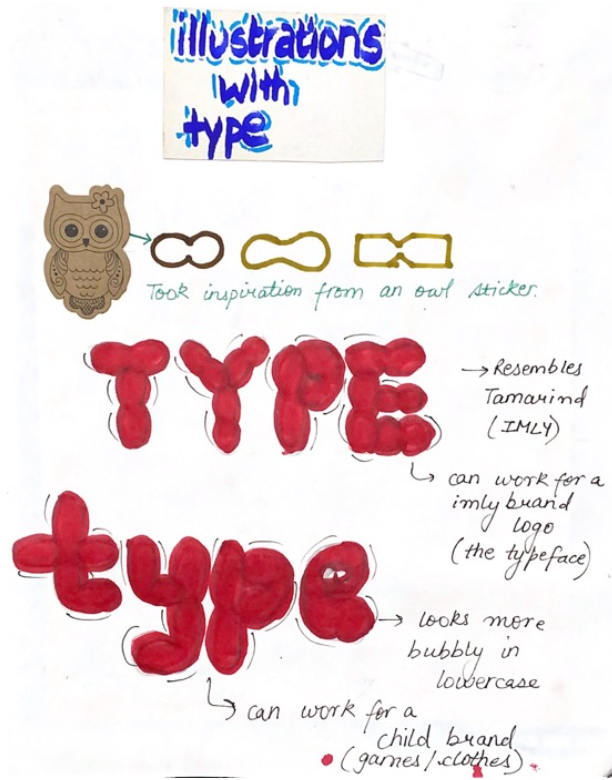 illustrations
with
type
Took inspiration from an owl sticker.
TYPE
→ Resembles
Tamarind
(IMLY)
can work for a
imly brand
logo
(the typeface)
type
→ looks more
bubbly in
lowercase
can work for a
child brand
(games/clothes)